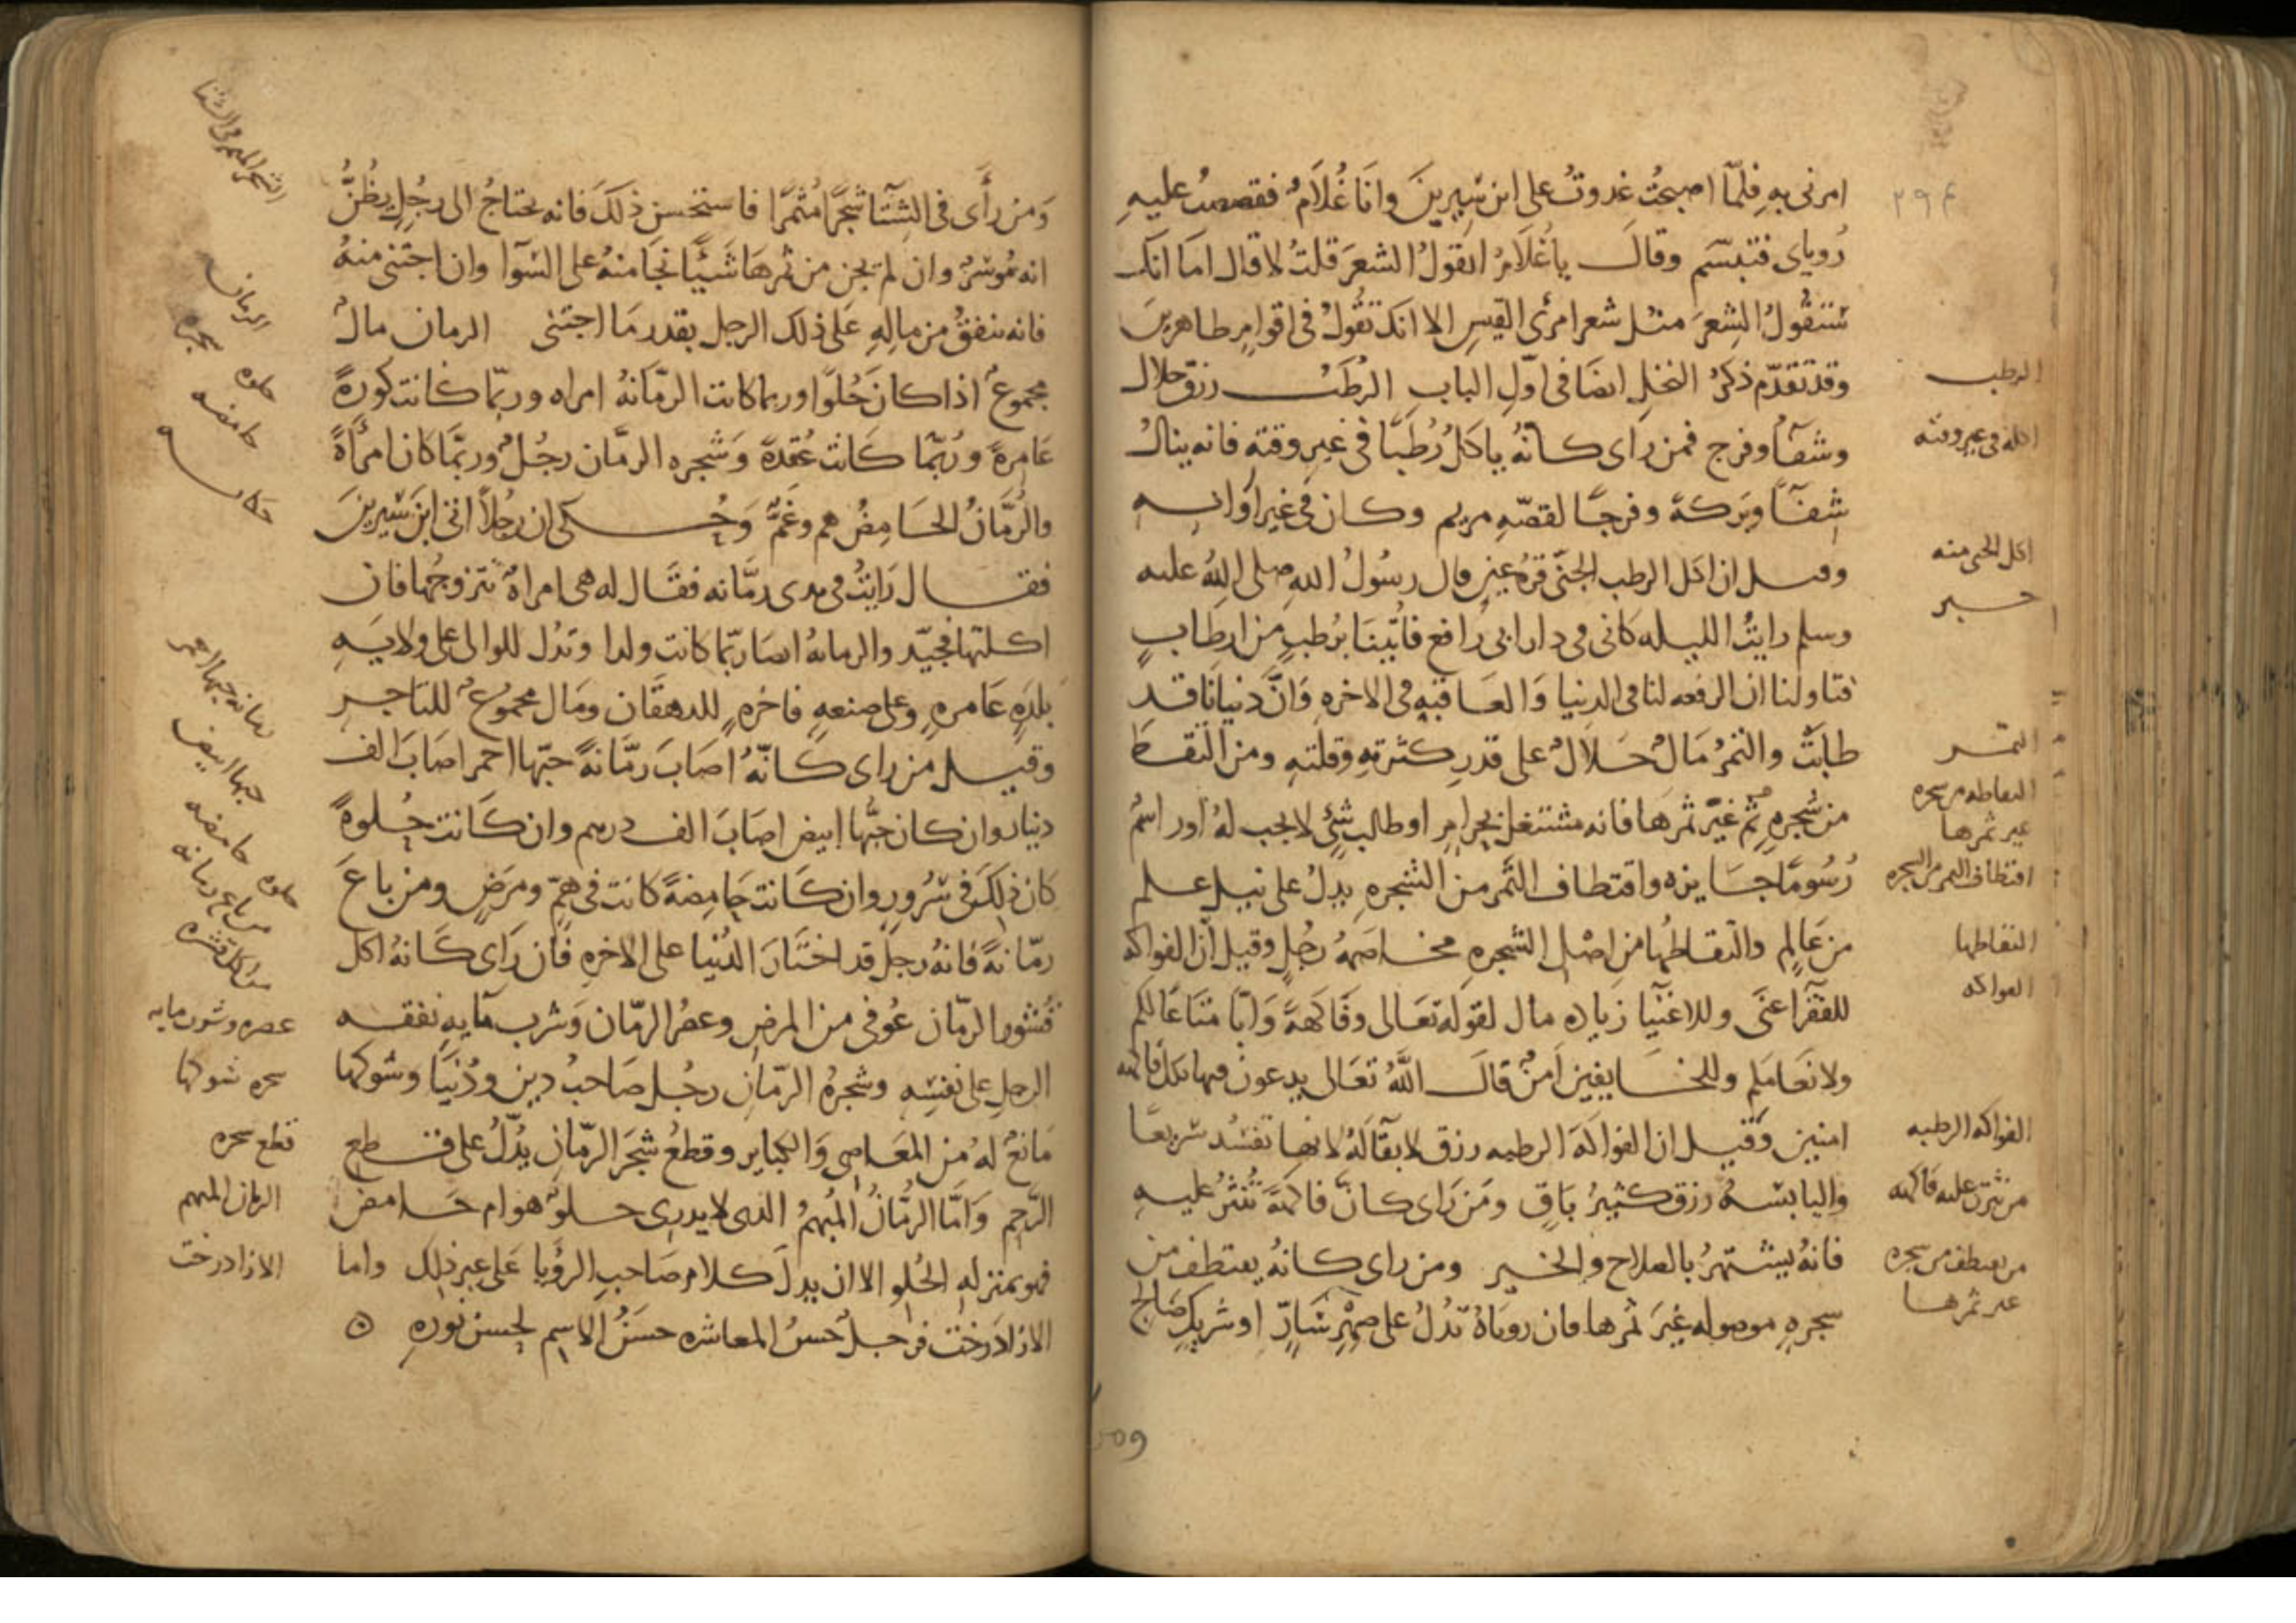 امرنى به فلما اصبحت غدوت على ابن سيرين وانا غلام فقصصت عليه
روياى فتبسم وقال يا غلام اتقول الشعر قلت لا قال اما انك
ستقول الشعر مثل شعر امرئ القيس الا انك تقول فى اقوام طاهرين
وقد تقدم ذكر النخل ايضا فى اول الباب الرطب رزق حلال
وشفآ وفرج فمن راى كانه ياكل رطبا فى غير وقته فانه ينال
شفآ وبركة وفرجا لقصه مريم وكان فى غير اوانه
وقيل ان اكل الرطب الجنى قره عين قال رسول الله صلى الله عليه
وسلم رايت الليله كانى فى دار ابى رافع فاتينا برطب من ارطاب
فتاولنا ان الرفعه لنا فى الدنيا والعاقبه فى الاخره وان دنيانا قد
طابت والتمر مال حلال على قدر كثرته وقلته ومن التقط
من شجره ثم غير ثمرها فانه مشتغل بحرام او طالب شئ لا يجب له او راسم
رسوما جايزه واقتطاف الثمر من الشجره يدل على نيل علم
من عالم والتقاطها من اصل الشجره مخاصمه رجل وقيل ان الفواكه
للفقرا غنى وللاغنيا زياده مال لقوله تعالى وفاكهة وابا متاعا لكم
ولانعامكم وللخايفين امن قال الله تعالى يدعون فيها بكل فاكهه
امنين وقيل ان الفواكه الرطبه رزق لا بقآ له لانها تفسد سريعا
واليابسه رزق كثير باق ومن راى كان فاكهة تنثر عليه
فانه يشتهر بالصلاح والخير ومن راى كانه يقتطف من
سجره موصوله غير ثمرها فان روياه تدل على صهر سار او شريك صالح
٢٩٤
الرطب
اكله فى غير وقته
اكل الجنى منه
خبر
التمر
التقاطه من سجره
غير ثمرها
اقتطاف الثمر من السجره
التقاطها
الفواكه
الفواكه الرطبه
من نثرت عليه فاكهه
من يقتطف من سجره
غير ثمرها
ومن رأى فى الشتآ شجرا مثمرا فاستحسن ذلك فانه يحتاج الى رجل يظن
انه موسر وان لم يجن من ثمرها شيئا نجا منه على السوآ وان اجتنى منه
فانه ينفق من ماله على ذلك الرجل بقدر ما اجتنى الرمان مال
مجموع اذا كان حلوا وربما كانت الرمانه امراه وربما كانت كورة
عامرة وربما كانت عقدة وشجره الرمان رجل وربما كان امرأة
والرمان الحامض هم وغم وحكى ان رجلا اتى ابن سيرين
فقال رايت فى يدى رمانه فقال له هى امراه تتزوجها فان
اكلتها فجيد والرمانه ايضا ربما كانت ولدا وتدل للوالى على ولايه
بلده عامره وعلى ضيعه فاخره للدهقان ومال مجموع للتاجر
وقيل من راى كانه اصاب رمانة حبها احمر اصاب الف
دينار وان كان حبها ابيض اصاب الف درهم وان كانت حلوة
كان ذلك فى سرور وان كانت حامضة كانت فى هم ومرض ومن باع
رمانة فانه رجل قد اختار الدنيا على الاخره فان راى كانه اكل
قشور الرمان عوفى من المرض وعصر الرمان وشرب مآيه نفقه
الرجل على نفسه وشجره الرمان رجل صاحب دين ودنيا وشوكها
مانع له من المعاصى والكباير وقطع شجر الرمان يدل على قطع
الرحم واما الرمان المبهم الذى لا يدرى حلو هو ام حامض
فهو بمنزله الحلو الا ان يدل كلام صاحب الرؤيا على غير ذلك واما
الازادرخت فرجل حسن المعاشره حسن الاسم لحسن نوره
الشجر المثمر فى الشتا
الرمان
حلوه
شجره
حامضه
حكايه
رمانه حبها احمر
حبها ابيض
حلوه حامضه
من باع رمانه
من اكل قشره
عصره وشرب مايه
سجره شوكها
قطع سجره
الرمان المبهم
الازادرخت